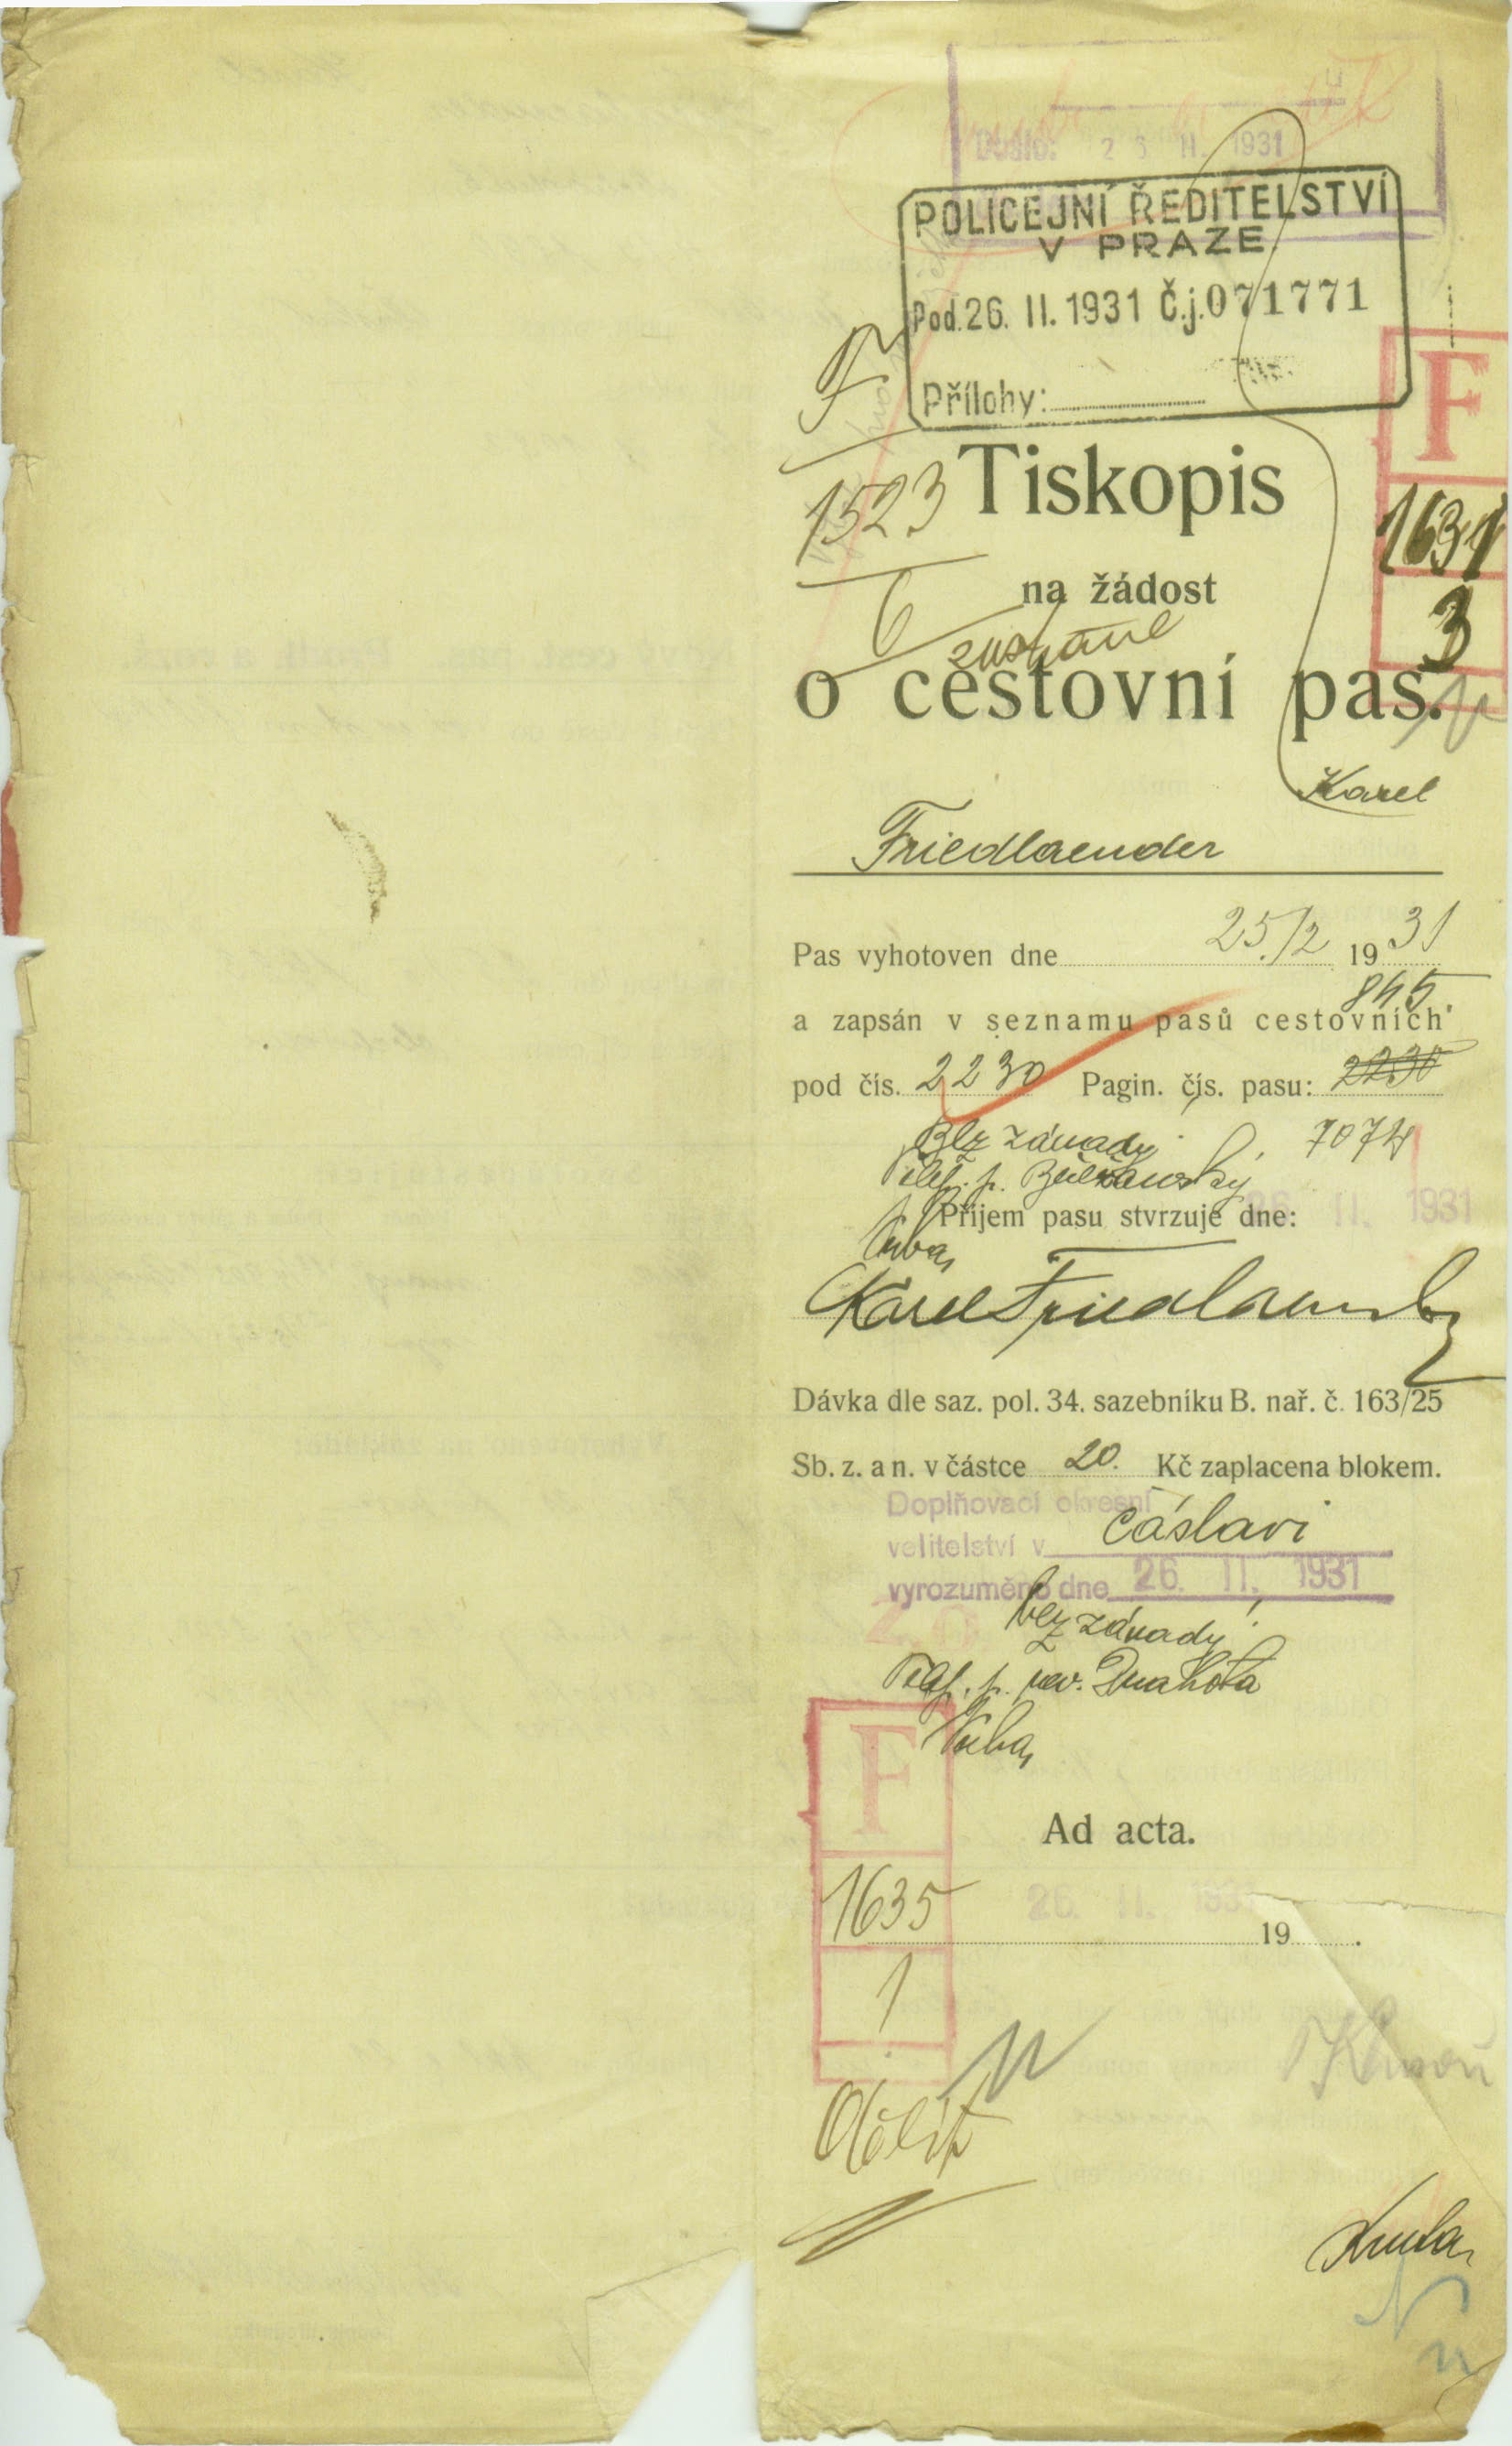 Došlo: 23 II. 1931
POLICEJNÍ ŘEDITELSTVÍ
V PRAZE
Pod. 26. II. 1931 Č.j. 071771
Přílohy:
F
1523
6
F
1631
3
Tiskopis
na žádost
o cestovní pas.
Karel
Friedlaender
Pas vyhotoven dne 25./2 1931
845
a zapsán v seznamu pasů cestovních
pod čís. 2230 Pagin. čís. pasu: 2230
Bez závady! 7074
Telef. p.
Příjem pasu stvrzuje dne: 26. II. 1931
Karel Friedlaender
Dávka dle saz. pol. 34. sazebníku B. nař. č. 163/25
Sb. z. a n. v částce 20. Kč zaplacena blokem.
Doplňovací okresní
velitelství v Čáslavi
vyrozuměno dne 26. II. 1931
bez závady!
Telef. p.
F
Ad acta.
1635
26. II. 1931
19 .
1